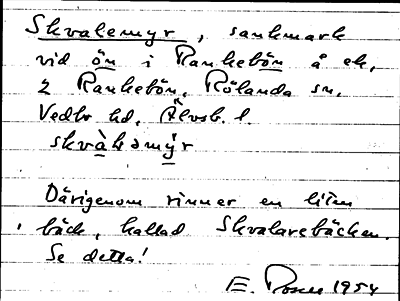 Skvalemyr, sankmark
vid ön i Rankebön å ek.
2 Rankebön, Rölanda sn,
Vedbo hd, Älvsb. l.
skvàləmýr
Därigenom rinner en liten
bäck, kallad Skvalarebäcken.
Se detta!
E. 1954